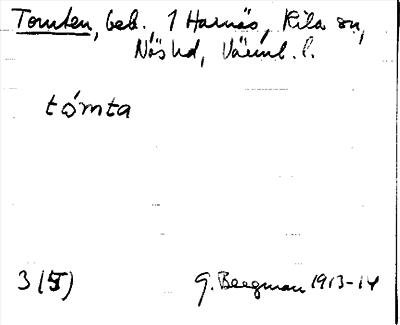 Tomten, beb., 1 Harnäs, Kila sn,
Näs hd, Värml. l.
tómta
3 (5)
G. Bergman 1913-14